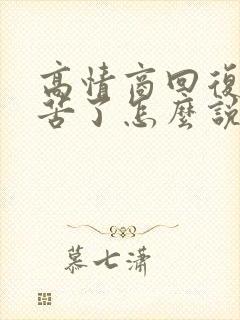 高情商回復
苦了怎麼說
慕七瀟